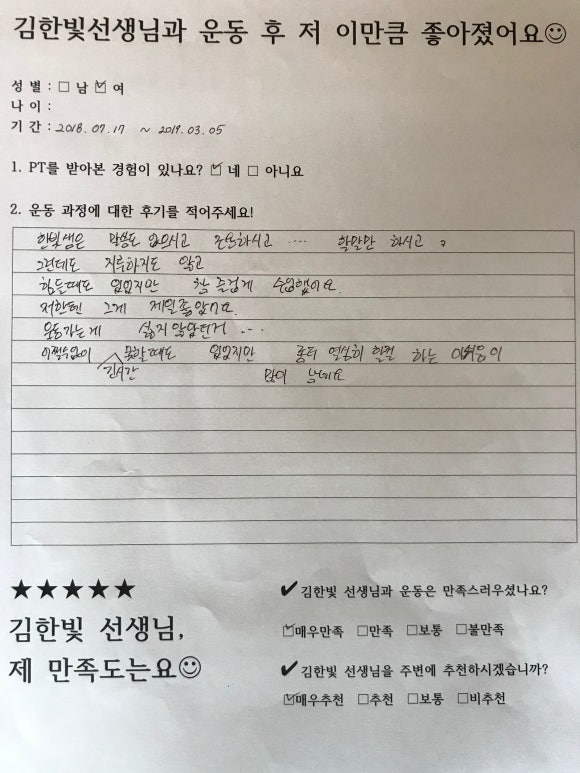 김한빛선생님과 운동 후 저 이만큼 좋아졌어요☺
성 별 : ☐ 남 ☑ 여
나 이 :
기 간 : 2018.07.17 ~ 2019.03.05
1. PT를 받아본 경험이 있나요? ☑ 네 ☐ 아니요
2. 운동 과정에 대한 후기를 적어주세요!
한빛쌤은 말씀도 없으시고 조용하시고 .... 할말만 하시고
그런데도 지루하지도 않고
힘들때도 있었지만 참 즐겁게 수업했어요.
저한텐 그게 제일 좋았어요.
운동가는게 싫지 않았던거 ...
어쩔수없이 못할때도 있었지만 좀더 열심히 할껄 하는 아쉬움이
긴시간 많이 남네요
★★★★★
김한빛 선생님,
제 만족도는요☺
✔김한빛 선생님과 운동은 만족스러우셨나요?
☑매우만족 ☐만족 ☐보통 ☐불만족
✔김한빛 선생님을 주변에 추천하시겠습니까?
☑매우추천 ☐추천 ☐보통 ☐비추천